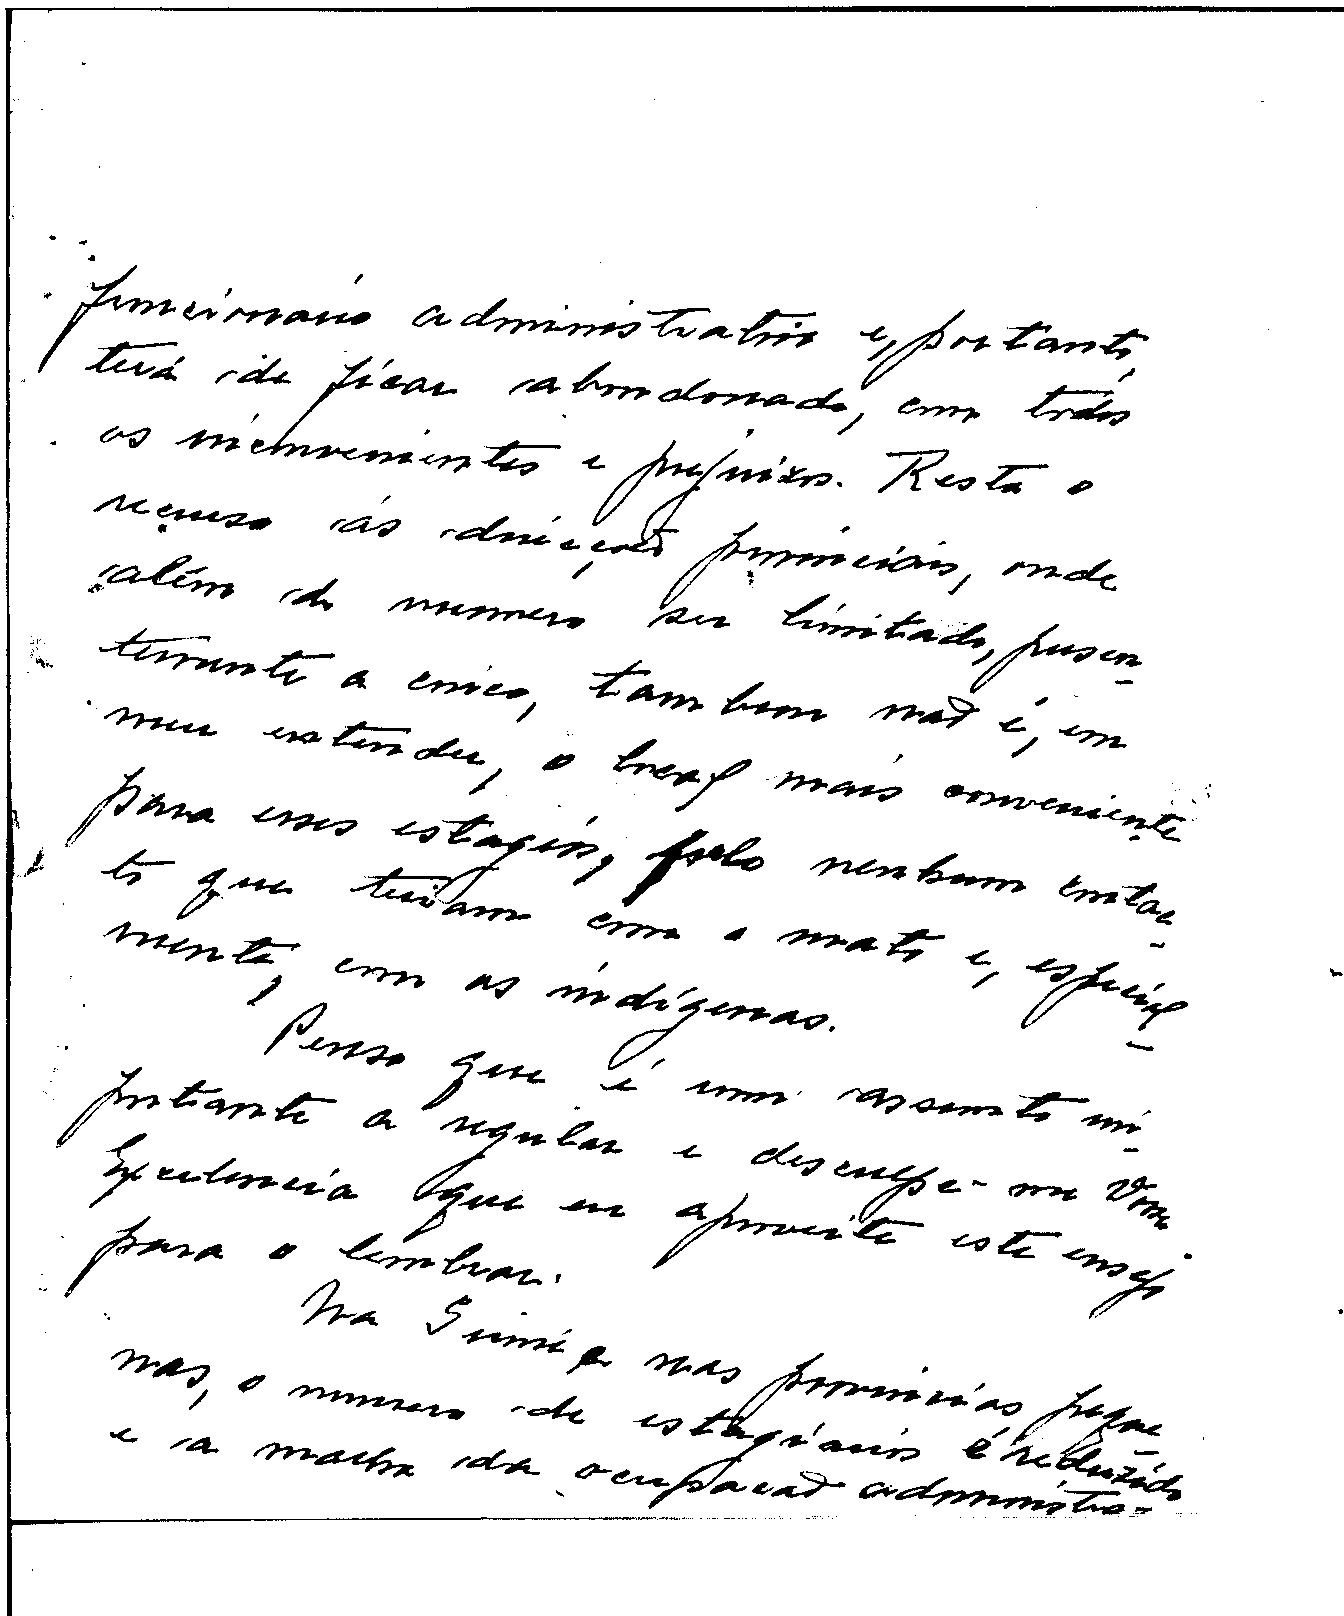 funcionário administrativo e, portanto,
terá de ficar abandonado, com todos
os inconvenientes e prejuizos. Resta o
recurso ás direcções provinciais, onde
além do numero ser limitado, presen-
temente a cinco, tambem não é, em
meu entender, o local mais conveniente
para esses estagios, pelo nenhum contac-
to que teriam com o mato e, especial-
mente, com os indígenas.
Penso que é um assunto im-
portante a regular e desculpe-me Vossa
Excelencia que eu aproveite este ensejo
para o lembrar.
Na Guiné e nas provincias peque-
nas, o numero de estagiarios é reduzido
e a malha da ocupação administra-